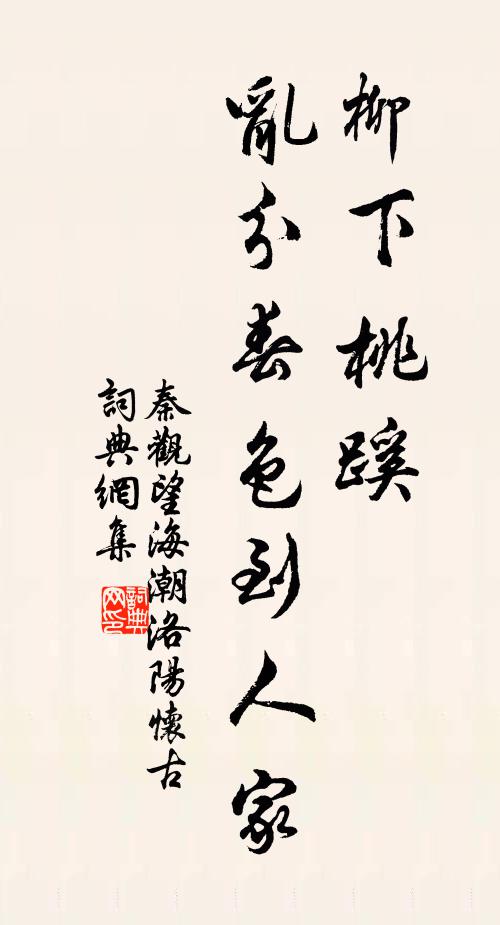 柳下桃蹊
亂分春色到人家
秦觀望海潮洛陽懷古
詞典網集
詞典网印